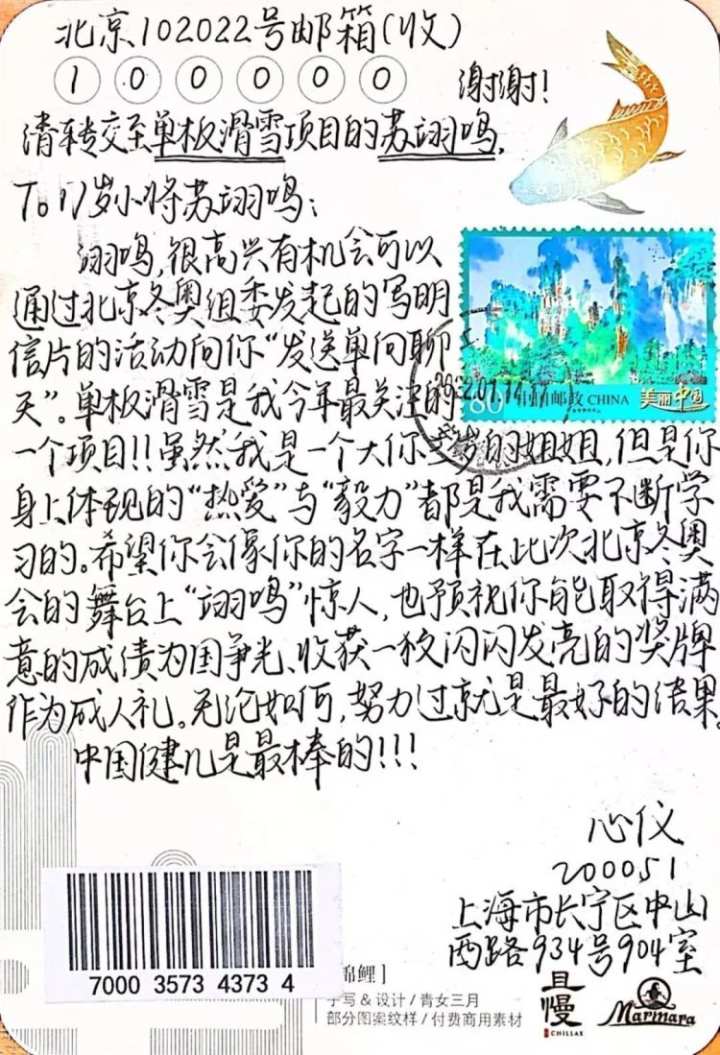 北京102022号邮箱(收)
1 0 0 0 0 0
谢谢!
请转交至单板滑雪项目的苏翊鸣.
To 17岁小将苏翊鸣:
翊鸣,很高兴有机会可以
通过北京冬奥组委发起的写明
信片的活动向你“发送单向聊
天”。单板滑雪是我今年最关注的
80 中国邮政 CHINA 美丽中国
一个项目!!虽然我是一个大你 岁的姐姐,但是你
身上体现的“热爱”与“毅力”都是我需要不断学
习的。希望你会像你的名字一样在此次北京冬奥
会的舞台上“翊鸣”惊人,也预祝你能取得满
意的成绩为国争光、收获一枚闪闪发亮的奖牌
作为成人礼。无论如何,努力过就是最好的结果。
中国健儿是最棒的!!!
心仪
200051
上海市长宁区中山
西路934号904室
7000 3573 4373 4
锦鲤]
手写&设计/青女三月
部分图案纹样/付费商用素材
且慢
CHILLAX
Marmara